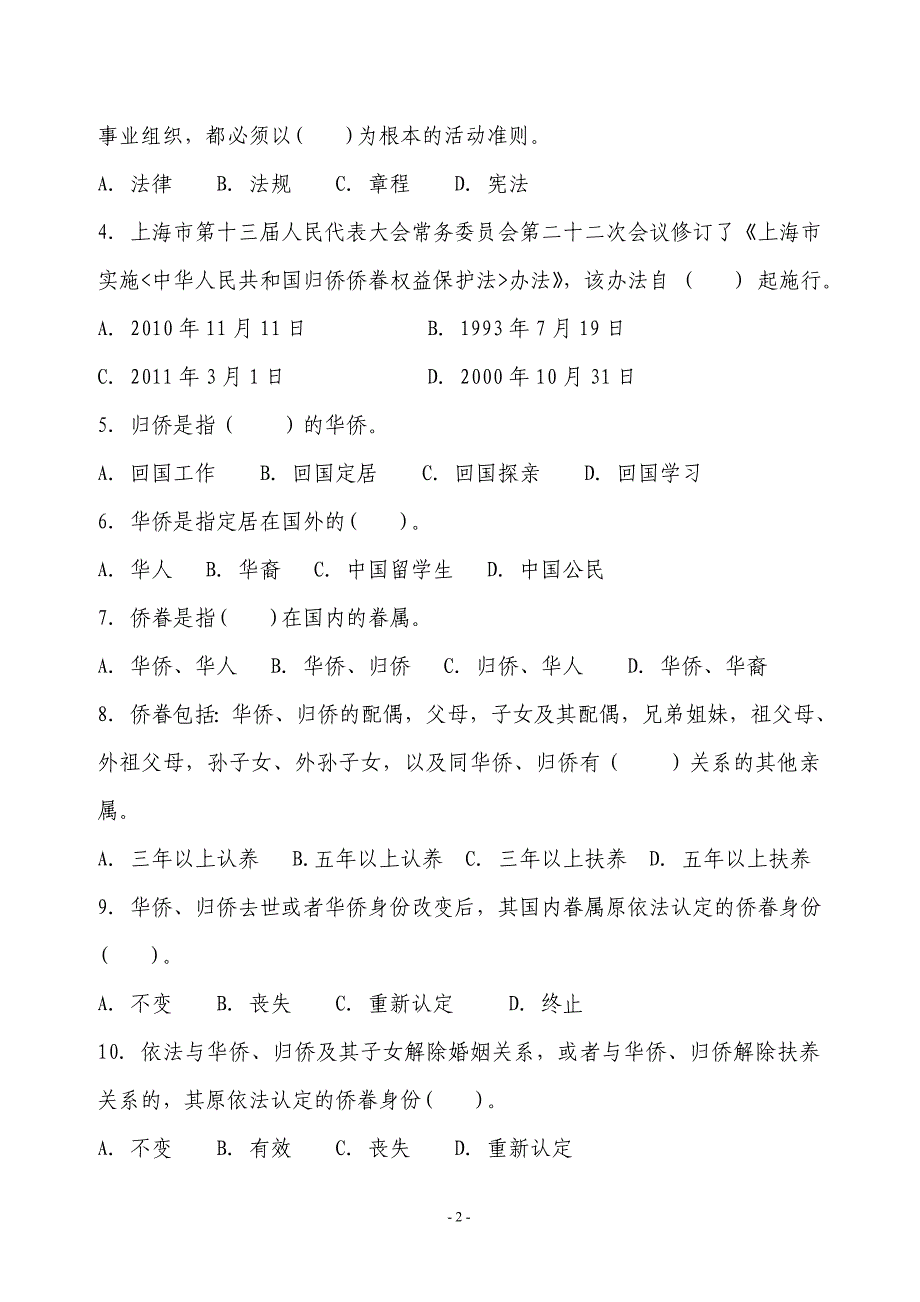 事业组织，都必须以(　　)为根本的活动准则。
A. 法律　B. 法规　C. 章程　D. 宪法
4. 上海市第十三届人民代表大会常务委员会第二十二次会议修订了《上海市
实施<中华人民共和国归侨侨眷权益保护法>办法》，该办法自 (　　) 起施行。
A. 2010 年 11 月 11 日　B. 1993 年 7 月 19 日
C. 2011 年 3 月 1 日　D. 2000 年 10 月 31 日
5. 归侨是指 (　　) 的华侨。
A. 回国工作　B. 回国定居　C. 回国探亲　D. 回国学习
6. 华侨是指定居在国外的(　　)。
A. 华人　B. 华裔　C. 中国留学生　D. 中国公民
7. 侨眷是指(　　)在国内的眷属。
A. 华侨、华人　B. 华侨、归侨　C. 归侨、华人　D. 华侨、华裔
8. 侨眷包括: 华侨、归侨的配偶，父母，子女及其配偶，兄弟姐妹，祖父母、
外祖父母，孙子女、外孙子女，以及同华侨、归侨有 (　　) 关系的其他亲
属。
A. 三年以上认养　B.五年以上认养　C. 三年以上扶养　D. 五年以上扶养
9. 华侨、归侨去世或者华侨身份改变后，其国内眷属原依法认定的侨眷身份
(　　)。
A. 不变　B. 丧失　C. 重新认定　D. 终止
10. 依法与华侨、归侨及其子女解除婚姻关系，或者与华侨、归侨解除扶养
关系的，其原依法认定的侨眷身份(　　)。
A. 不变　B. 有效　C. 丧失　D. 重新认定
- 2 -